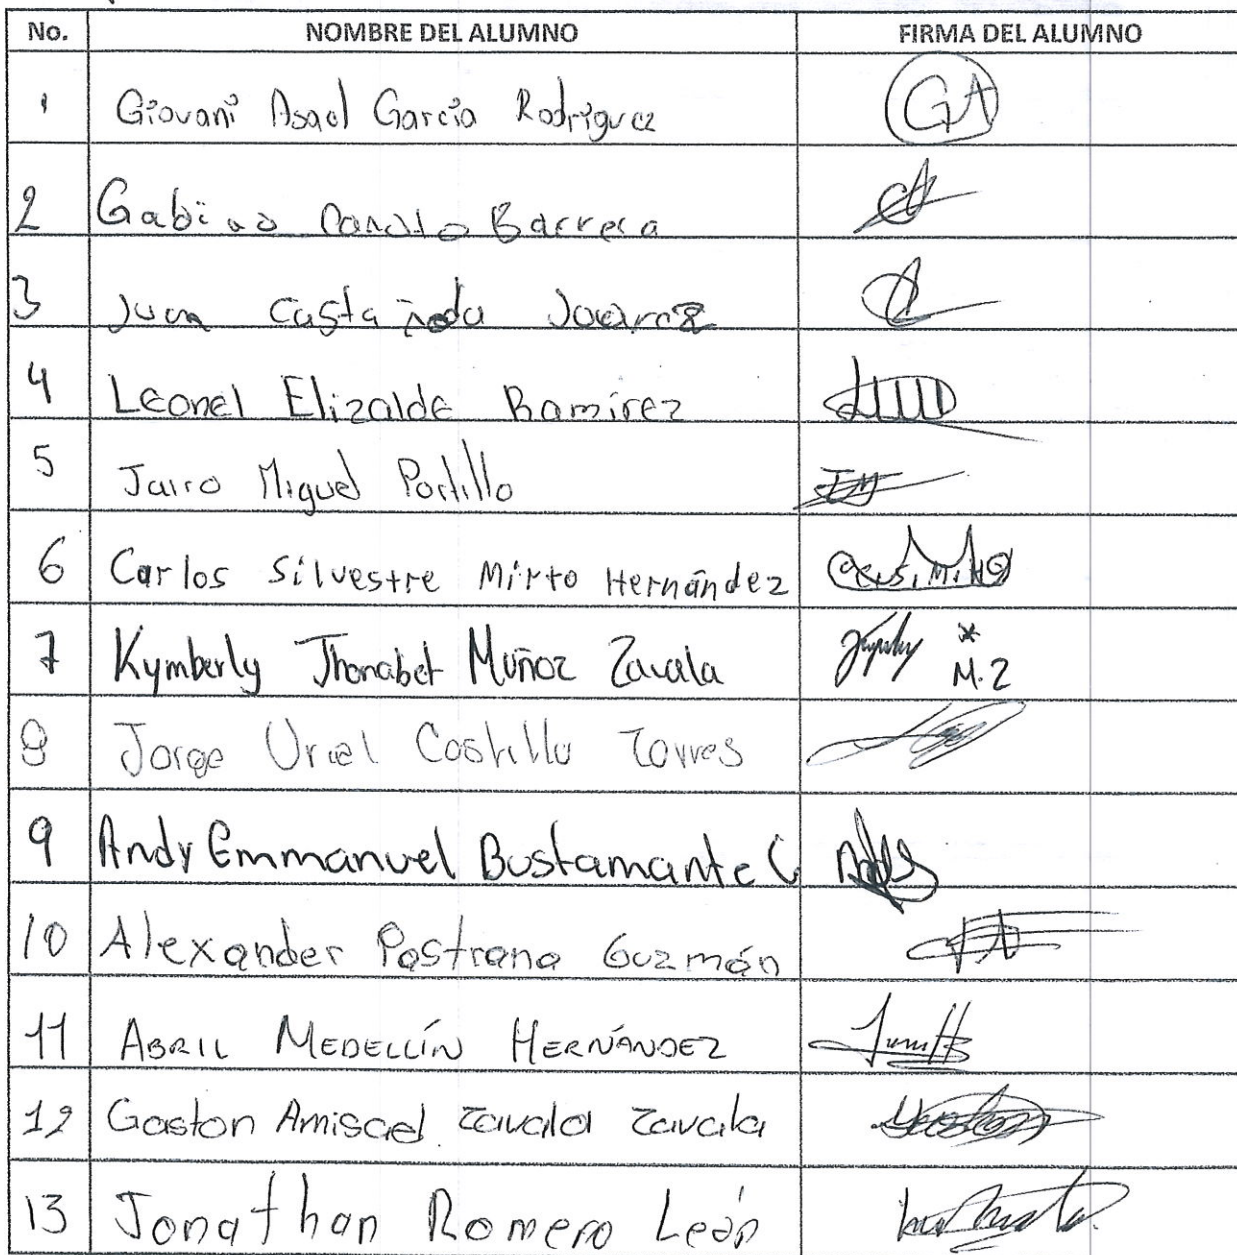 No. NOMBRE DEL ALUMNO FIRMA DEL ALUMNO
1 Giovani Asael García Rodríguez GA
2 Gabino Barrera
3 Juan Castañeda Juarez
4 Leonel Elizalde Ramirez
5 Jairo Miguel Portillo JM
6 Carlos Silvestre Mirto Hernández
7 Kymberly Jhonabet Muñoz Zavala M.Z
8 Jorge Uriel Castillo Torres
9 Andy Emmanuel Bustamante C
10 Alexander Pastrana Guzmán
11 ABRIL MEDELLÍN HERNÁNDEZ
12 Gaston Amisael Zavala Zavala
13 Jonathan Romero León